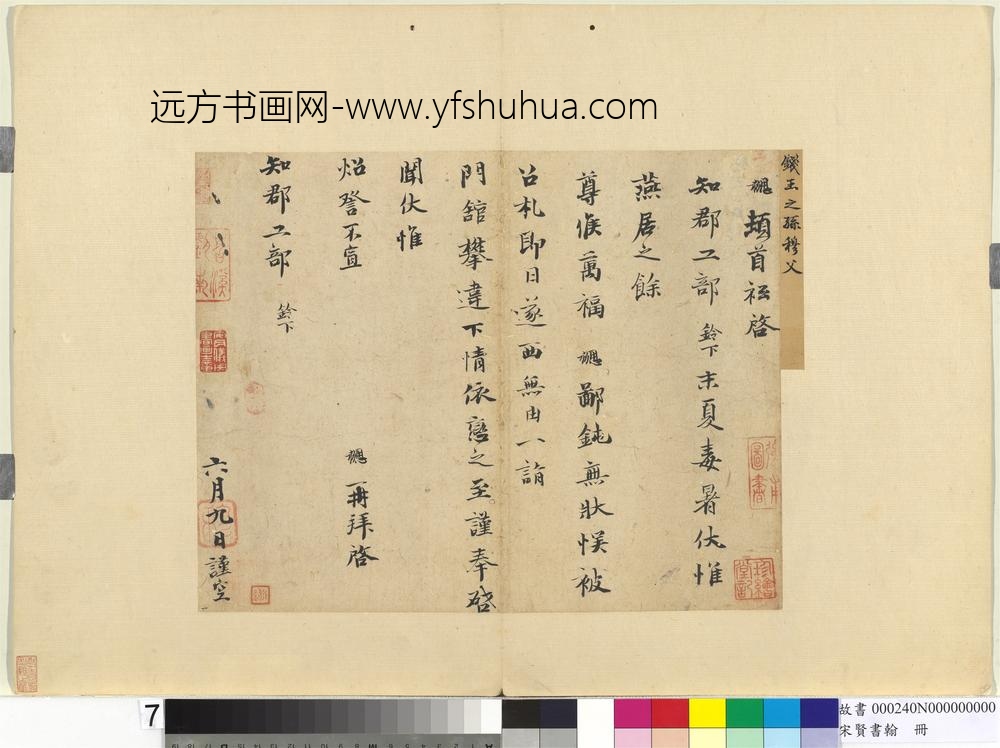 远方书画网-www.yfshuhua.com
錢王之孫穆父
勰頓首拜啓
知郡工部 鈴下 末夏毒暑伏惟
燕居之餘
尊候萬福 勰鄙鈍無狀悞被
召札即日遂西無由一詣
門舘攀違下情依戀之至謹奉啓
聞伏惟
炤詧不宣
勰 再拜啓
知郡工部 鈴下
六月九日謹空
7
故書 000240N000000000
宋賢書翰 冊